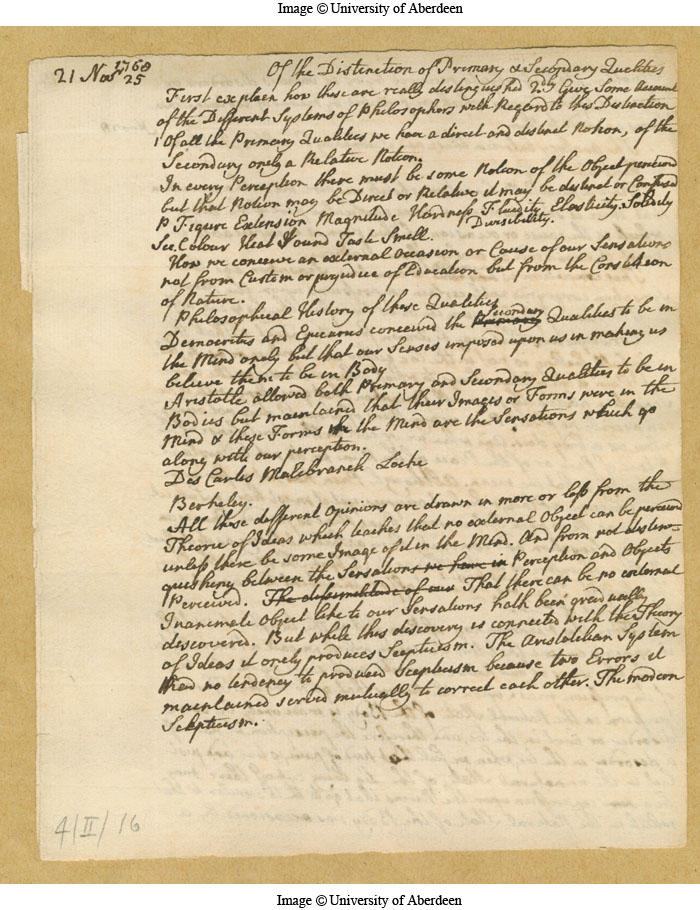 Image © University of Aberdeen
21 Novr 1768
25
Of the Distinction of Primary & Secondary Qualities
First explain how these are really distinguished 2dly Give Some Account
of the Different Systems of Philosophers with Regard to this Distinction
1 Of all the Primary Qualities we have a direct and distinct Notion, of the
Secondary onely a Relative Notion.
In every Perception there must be some Notion of the Object perceived
but that Notion may be Direct or Relative it may be distinct or Confused
P Figure Extension Magnitude Hardness Fluidity Elasticity. Solidity
Divisibility.
Sec. Colour Heat Sound Taste Smell.
How we conceive an external Occasion or Cause of our Sensations
not from Custom or prejudice of Education but from the Constitution
of Nature.
Philosophical History of these Qualities
Democritus and Epicurus conceived the Primary Secondary Qualities to be in
the Mind onely but that our Senses imposed upon us in making us
believe them to be in Body
Aristotle allowed both Primary and Secondary Qualities to be in
Bodies but maintained that their Images or Forms were in the
Mind & these Forms in the Mind are the Sensations which go
along with our perception.
Des Cartes Malebranch Locke
Berkeley.
All these different Opinions are drawn in more or less from the
Theorie of Ideas which teaches that no external Object can be perceived
unless there be some Image of it in the Mind. And from not distin-
guishing between the Sensations we have in Perception and Objects
Perceived. The dissimilitude of our That there can be no external
Inanimate Object like to our Sensations hath been gradually
discovered. But while this discovery is connected with the Theory
of Ideas it onely produces Scepticism. The Aristotelian System
had no tendency to produce Scepticism because two Errors it
maintained served mutually to correct each other. The modern
Scepticism.
4/II/16
Image © University of Aberdeen